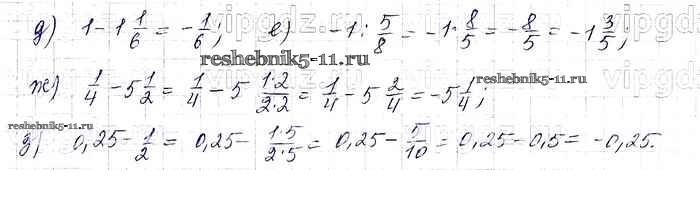 д) 1 - 1 1/6 = - 1/6; е) -1 : 5/8 = -1 · 8/5 = - 8/5 = -1 3/5;
reshebnik5-11.ru
ж) 1/4 - 5 1/2 = 1/4 - 5 1·2/2·2 = 1/4 - 5 2/4 = -5 1/4;
reshebnik5-11.ru
reshebnik5-11.ru
з) 0,25 - 1/2 = 0,25 - 1·5/2·5 = 0,25 - 5/10 = 0,25 - 0,5 = -0,25.